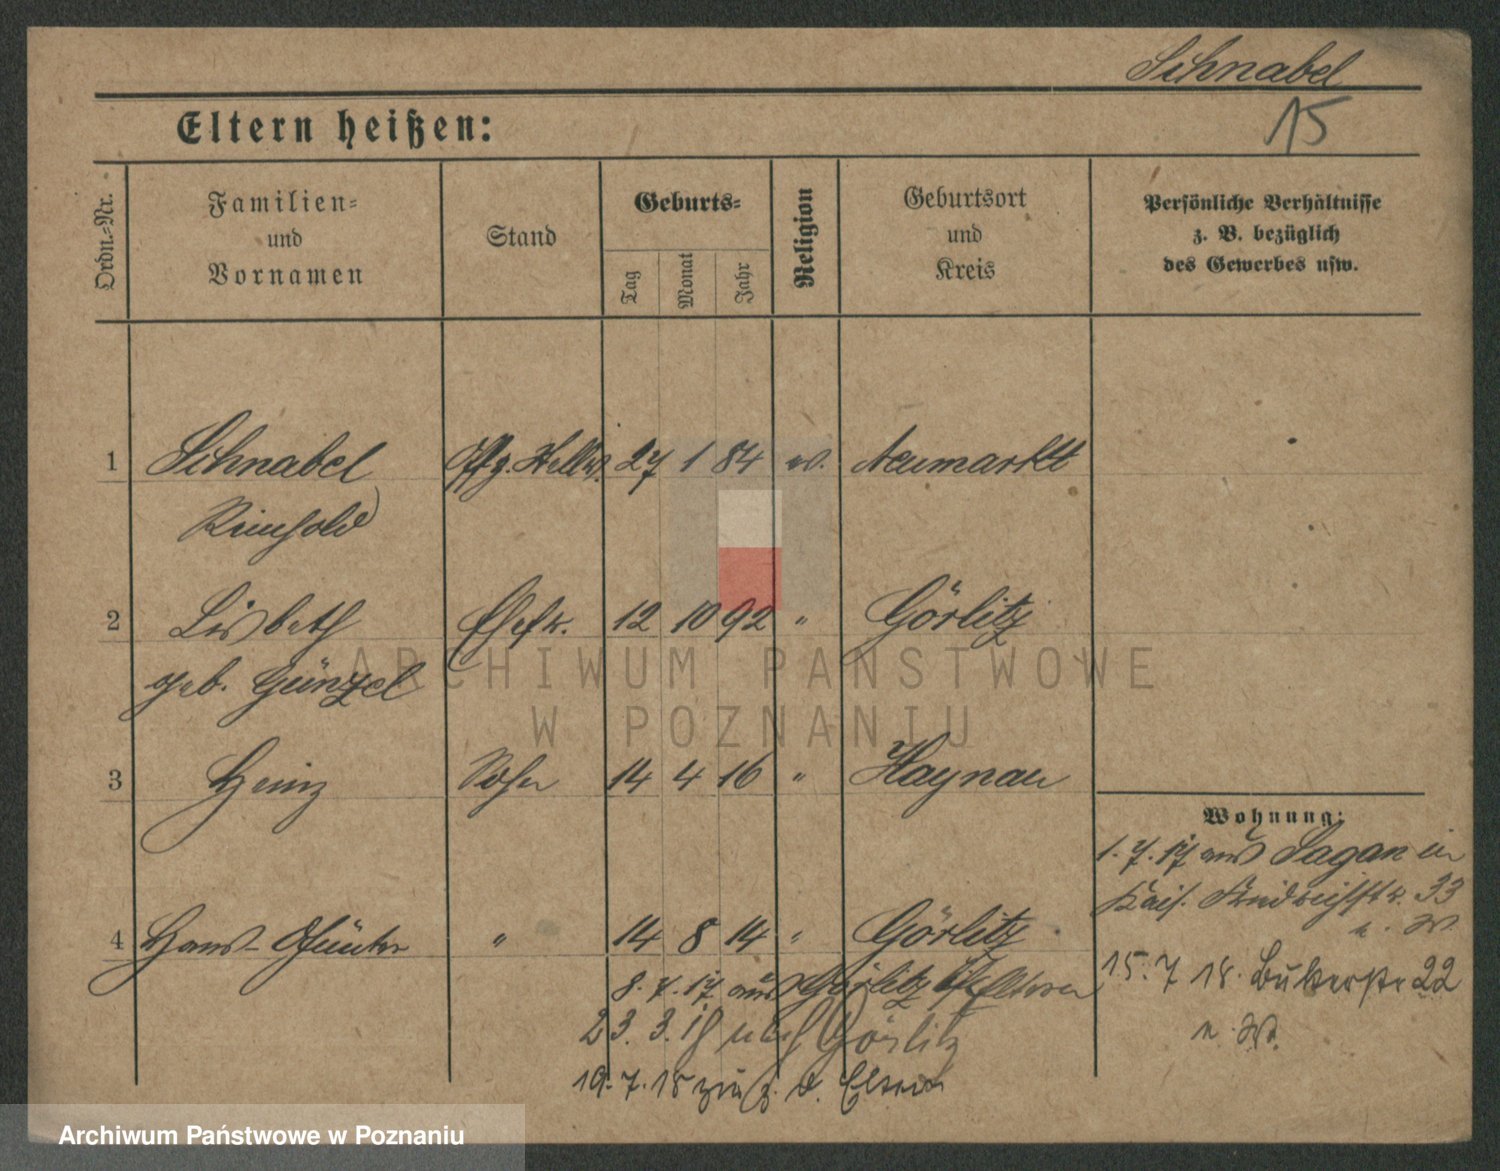 Schnabel
15
Eltern heißen:
Ordn.-Nr.
Familien-
und
Vornamen
Stand
Geburts-
Tag
Monat
Jahr
Religion
Geburtsort
und
Kreis
Persönliche Verhältnisse
z. B. bezüglich
des Gewerbes usw.
1 Schnabel 27 1 84 ev. Neumarkt
Reinhold
2 Lisbeth Ehefr. 12 10 92 " Görlitz
geb. Günzel
3 Heinz Sohn 14 4 16 " Haynau
4 Hans-Günter " 14 8 14 " Görlitz
8. 7. 17 aus Görlitz Eltern
23. 3. 18 nach Görlitz
19. 7. 18 zur z. d. Eltern
Wohnung:
1. 7. 17 aus Sagan in
Kais. Friedrichstr. 33
n. W.
15. 7 18. Bukerstr 22
n. W.
ARCHIWUM PAŃSTWOWE
W POZNANIU
Archiwum Państwowe w Poznaniu